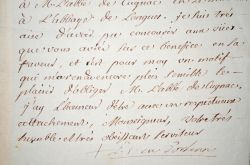 M. L'abbé de Cugnac
à L'abbaye de Longues, je suis très
aise d'avoir pu concourir aux vues
que vous aviez sur ce benefice en sa
faveur, et c'est pour moy un motif
qui m'en rend encore plus sensible le
plaisir d'obliger M. L'abbé de Cugnac,
j'ay l'honneur d'être avec un respectueux
attachement, Monseigneur, votre très
humble et très obéissant serviteur